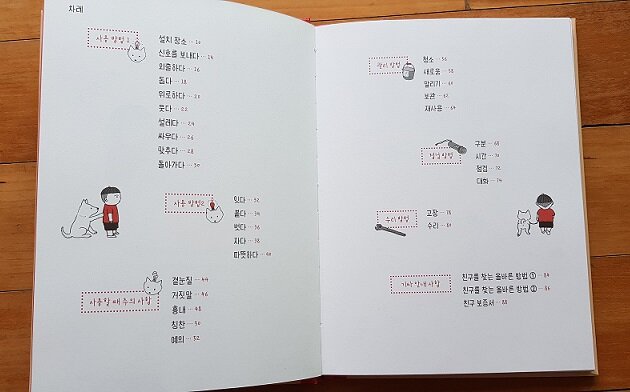 차례
사용 방법 1
설치 장소 … 10
신호를 보내다 … 14
외출하다 … 16
돕다 … 18
위로하다 … 20
웃다 … 22
설레다 … 24
싸우다 … 26
맞추다 … 28
돌아가다 … 30
사용 방법 2
잇다 … 32
풀다 … 34
벗다 … 36
자다 … 38
따뜻하다 … 40
사용할 때 주의 사항
곁눈질 … 44
거짓말 … 46
흉내 … 48
칭찬 … 50
예의 … 52
관리 방법
청소 … 56
새로움 … 58
말리기
보관 … 62
재사용 … 64
점검 방법
구분 … 68
시간
점검 … 72
대화 … 74
수리 방법
고장 … 78
수리 … 80
기타 안내 사항
친구를 찾는 올바른 방법 ① … 84
친구를 찾는 올바른 방법 ② … 86
친구 보증서 … 88